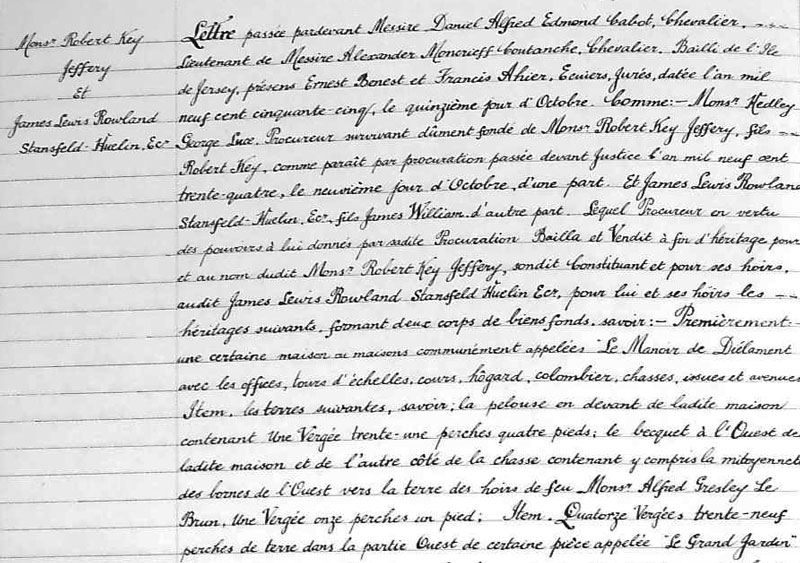 Monsr Robert Key
Jeffery
Et
James Lewis Rowland
Stansfeld-Huelin, Ecr
Lettre passée pardevant Messire Daniel Alfred Edmond Cabot, Chevalier, --
Lieutenant de Messire Alexander Moncrieff Coutanche, Chevalier, Bailli de l'Ile
de Jersey, présens Ernest Benest et Francis Ahier, Ecuiers, Jurés, datée l'an mil
neuf cent cinquante-cinq, le quinzième jour d'Octobre. Comme:- Monsr Hedley
George Luce, Procureur survivant dûment fondé de Monsr Robert Key Jeffery, fils --
Robert Key, comme paraît par procuration passée devant Justice l'an mil neuf cent
trente-quatre, le neuvième jour d'Octobre, d'une part. Et James Lewis Rowland
Stansfeld-Huelin, Ecr, fils James William, d'autre part. Lequel Procureur en vertu
des pouvoirs à lui donnés par sadite Procuration Bailla et Vendit à fin d'héritage pour
et au nom dudit Monsr Robert Key Jeffery, sondit Constituant et pour ses hoirs,
audit James Lewis Rowland Stansfeld Huelin Ecr, pour lui et ses hoirs les --
héritages suivants, formant deux corps de biens fonds, savoir:- Premièrement-
une certaine maison ou maisons communément appelées "Le Manoir de Diélament
avec les offices, tours d'échelles, cours, hôgard, colombier, chasses, issues et avenues
Item, les terres suivantes, savoir; la pelouse en devant de ladite maison
contenant Une Vergée trente-une perches quatre pieds; le becquet à l'Ouest de
ladite maison et de l'autre côté de la chasse contenant y compris la mitoyenneté
des bornes de l'Ouest vers la terre des hoirs de feu Monsr Alfred Gresley Le
Brun, Une Vergée onze perches un pied; Item, Quatorze Vergées trente-neuf
perches de terre dans la partie Ouest de certaine pièce appelée "Le Grand Jardin"